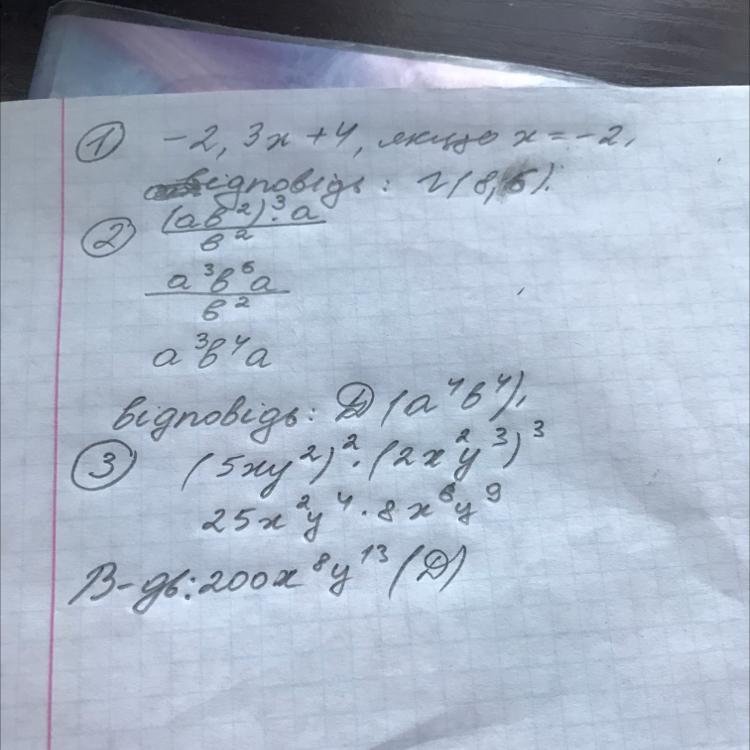 ① -2,3x+4, якщо x=-2.
відповідь: Г(8,6).
② (ab²)³·a
b²
a³b⁶a
b²
a³b⁴a
відповідь: Д (a⁴b⁴).
③ (5xy²)²·(2x²y³)³
25x²y⁴·8x⁶y⁹
В-дь: 200x⁸y¹³ (Д)